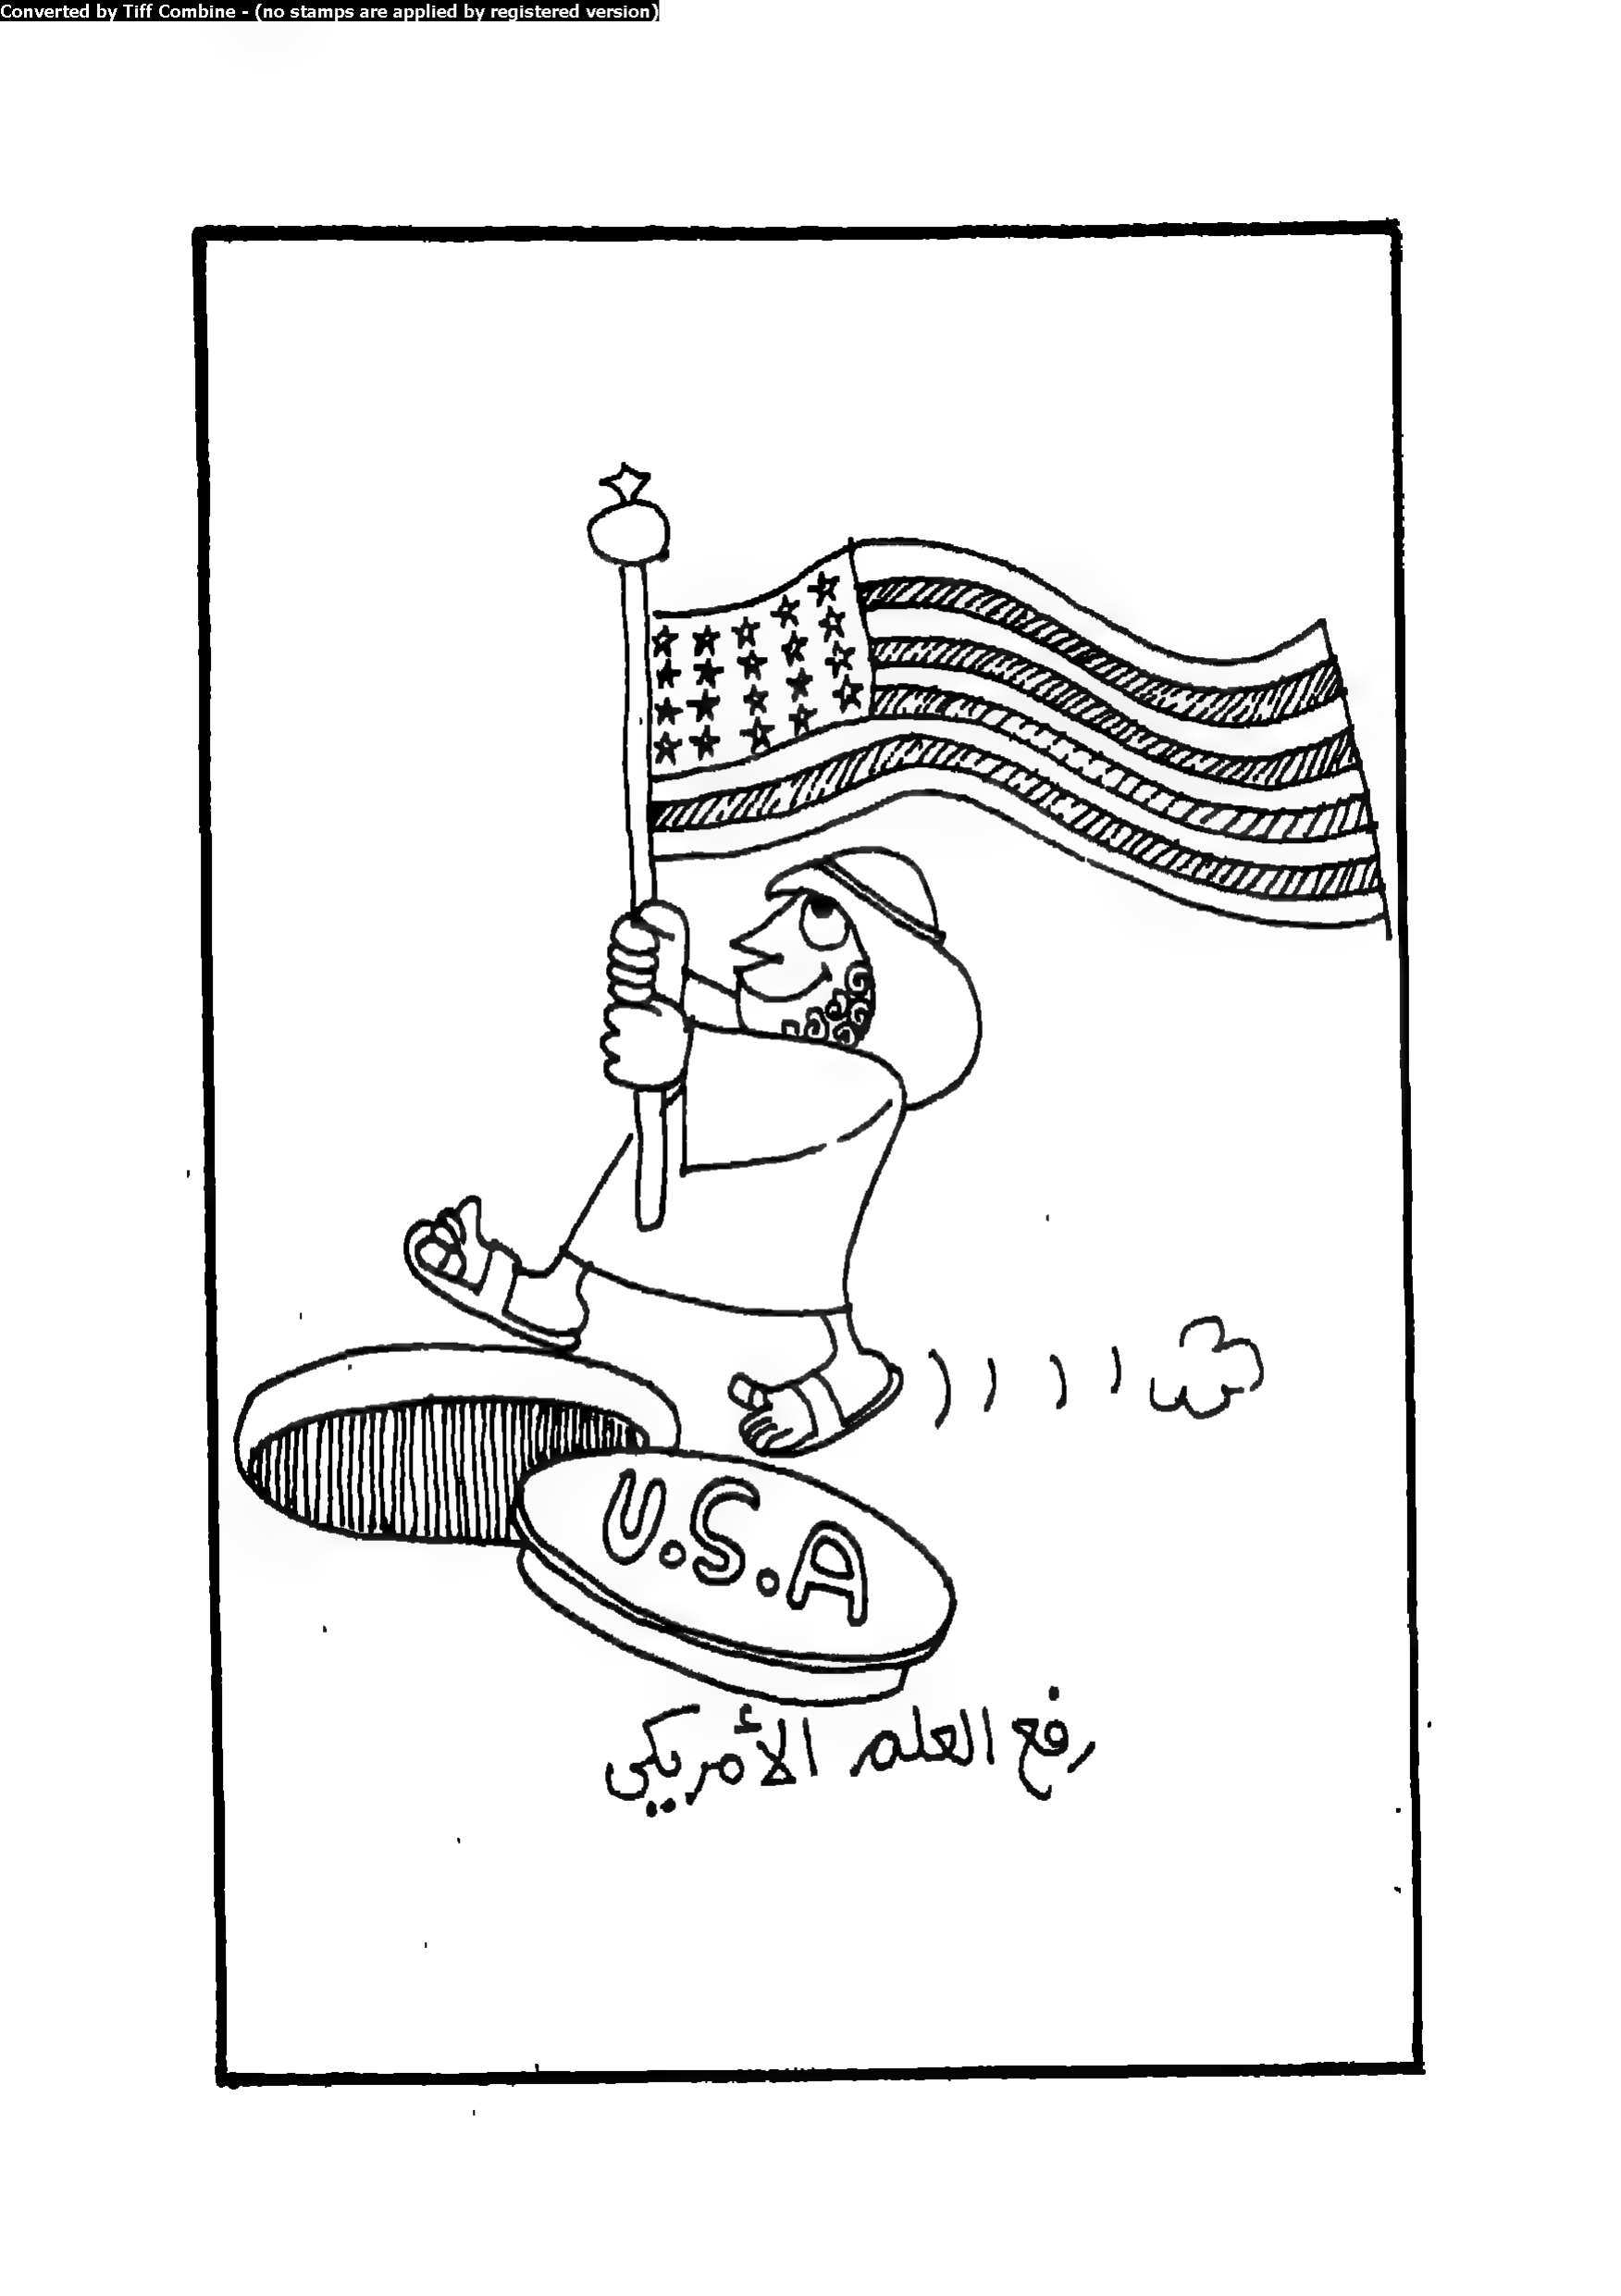 Converted by Tiff Combine - (no stamps are applied by registered version)
U.S.A
رفع العلم الأمريكي